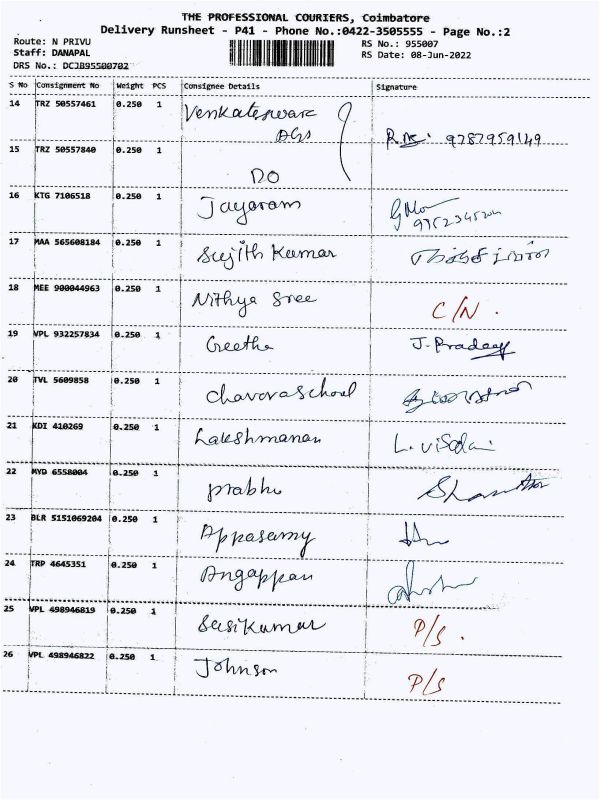 THE PROFESSIONAL COURIERS, Coimbatore
Delivery Runsheet - P41 - Phone No.:0422-3505555 - Page No.:2
Route: N PRIVU RS No.: 955007
Staff: DANAPAL RS Date: 08-Jun-2022
DRS No.: DCJB95500702
S No Consignment No Weight PCS Consignee Details Signature
14 TRZ 50557461 0.250 1 Venkateswara
9787959149
15 TRZ 50557840 0.250 1 DO
16 KTG 7106518 0.250 1 Jayaram
17 MAA 565608184 0.250 1 Sujith Kumar
18 MEE 900044963 0.250 1 Nithya Sree C/N .
19 VPL 932257834 0.250 1 Geetha J. Pradeep
20 TVL 5609858 0.250 1
21 KDI 410269 0.250 1 Lakshmanan L.
22 MYD 6558004 0.250 1 prabhu
23 BLR 5151069204 0.250 1 Appasamy
24 TRP 4645351 0.250 1 Angappan
25 VPL 498946819 0.250 1 Sasikumar P/S .
26 VPL 498946822 0.250 1 Johnson P/S